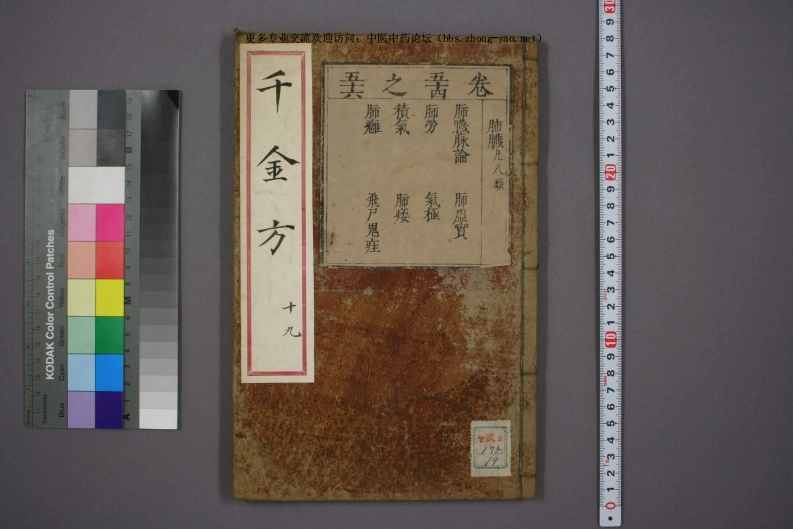 更多专业交流欢迎访问：中医中药论坛（bbs.zhong-yao.net）
卷五十四之五十六
肺臟凡八類
肺臟脉論 肺虛實
肺勞 氣極
積氣 肺痿
肺癰 飛尸鬼疰
千金方
十九
19
KODAK Color Control Patches
Blue Cyan Green Yellow Red Magenta White 3/Color Black
A M B
0 1 2 3 4 5 6 7 8 9 10 1 2 3 4 5 6 7 8 9 20 1 2 3 4 5 6 7 8 9 30